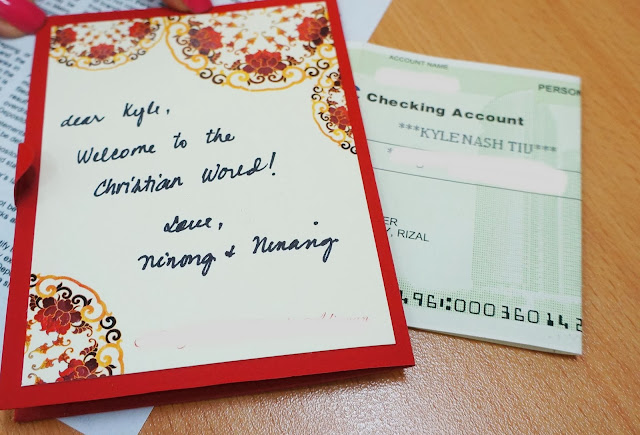 dear Kyle,
Welcome to the
Christian World!
Love,
Ninong & Ninang
ACCOUNT NAME
PERSON
Checking Account
***KYLE NASH TIU***
ER
Y, RIZAL